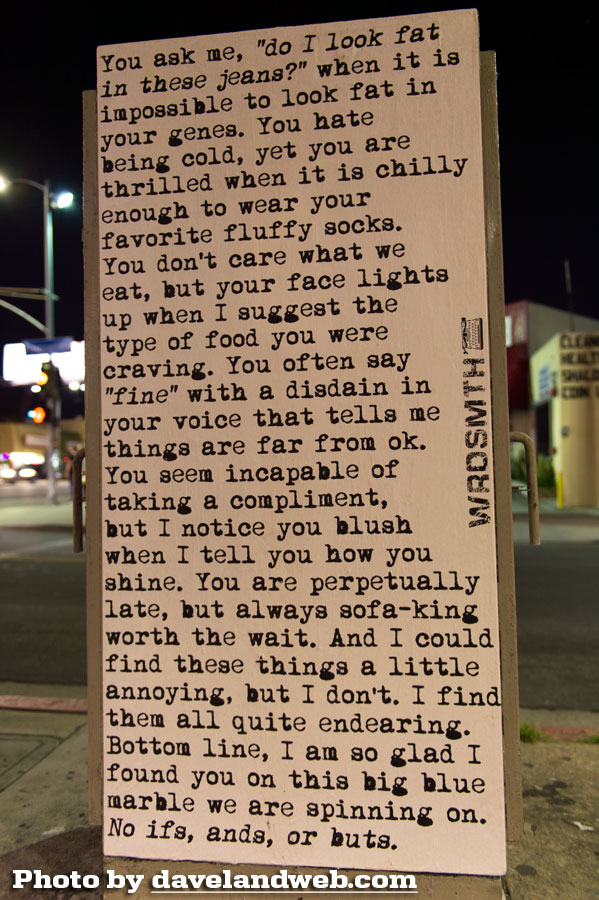 You ask me, "do I look fat
in these jeans?" when it is
impossible to look fat in
your genes. You hate
being cold, yet you are
thrilled when it is chilly
enough to wear your
favorite fluffy socks.
You don't care what we
eat, but your face lights
up when I suggest the
type of food you were
craving. You often say
"fine" with a disdain in
your voice that tells me
things are far from ok.
You seem incapable of
taking a compliment,
but I notice you blush
when I tell you how you
shine. You are perpetually
late, but always sofa-king
worth the wait. And I could
find these things a little
annoying, but I don't. I find
them all quite endearing.
Bottom line, I am so glad I
found you on this big blue
marble we are spinning on.
No ifs, ands, or buts.
WRDSMTH
Photo by davelandweb.com